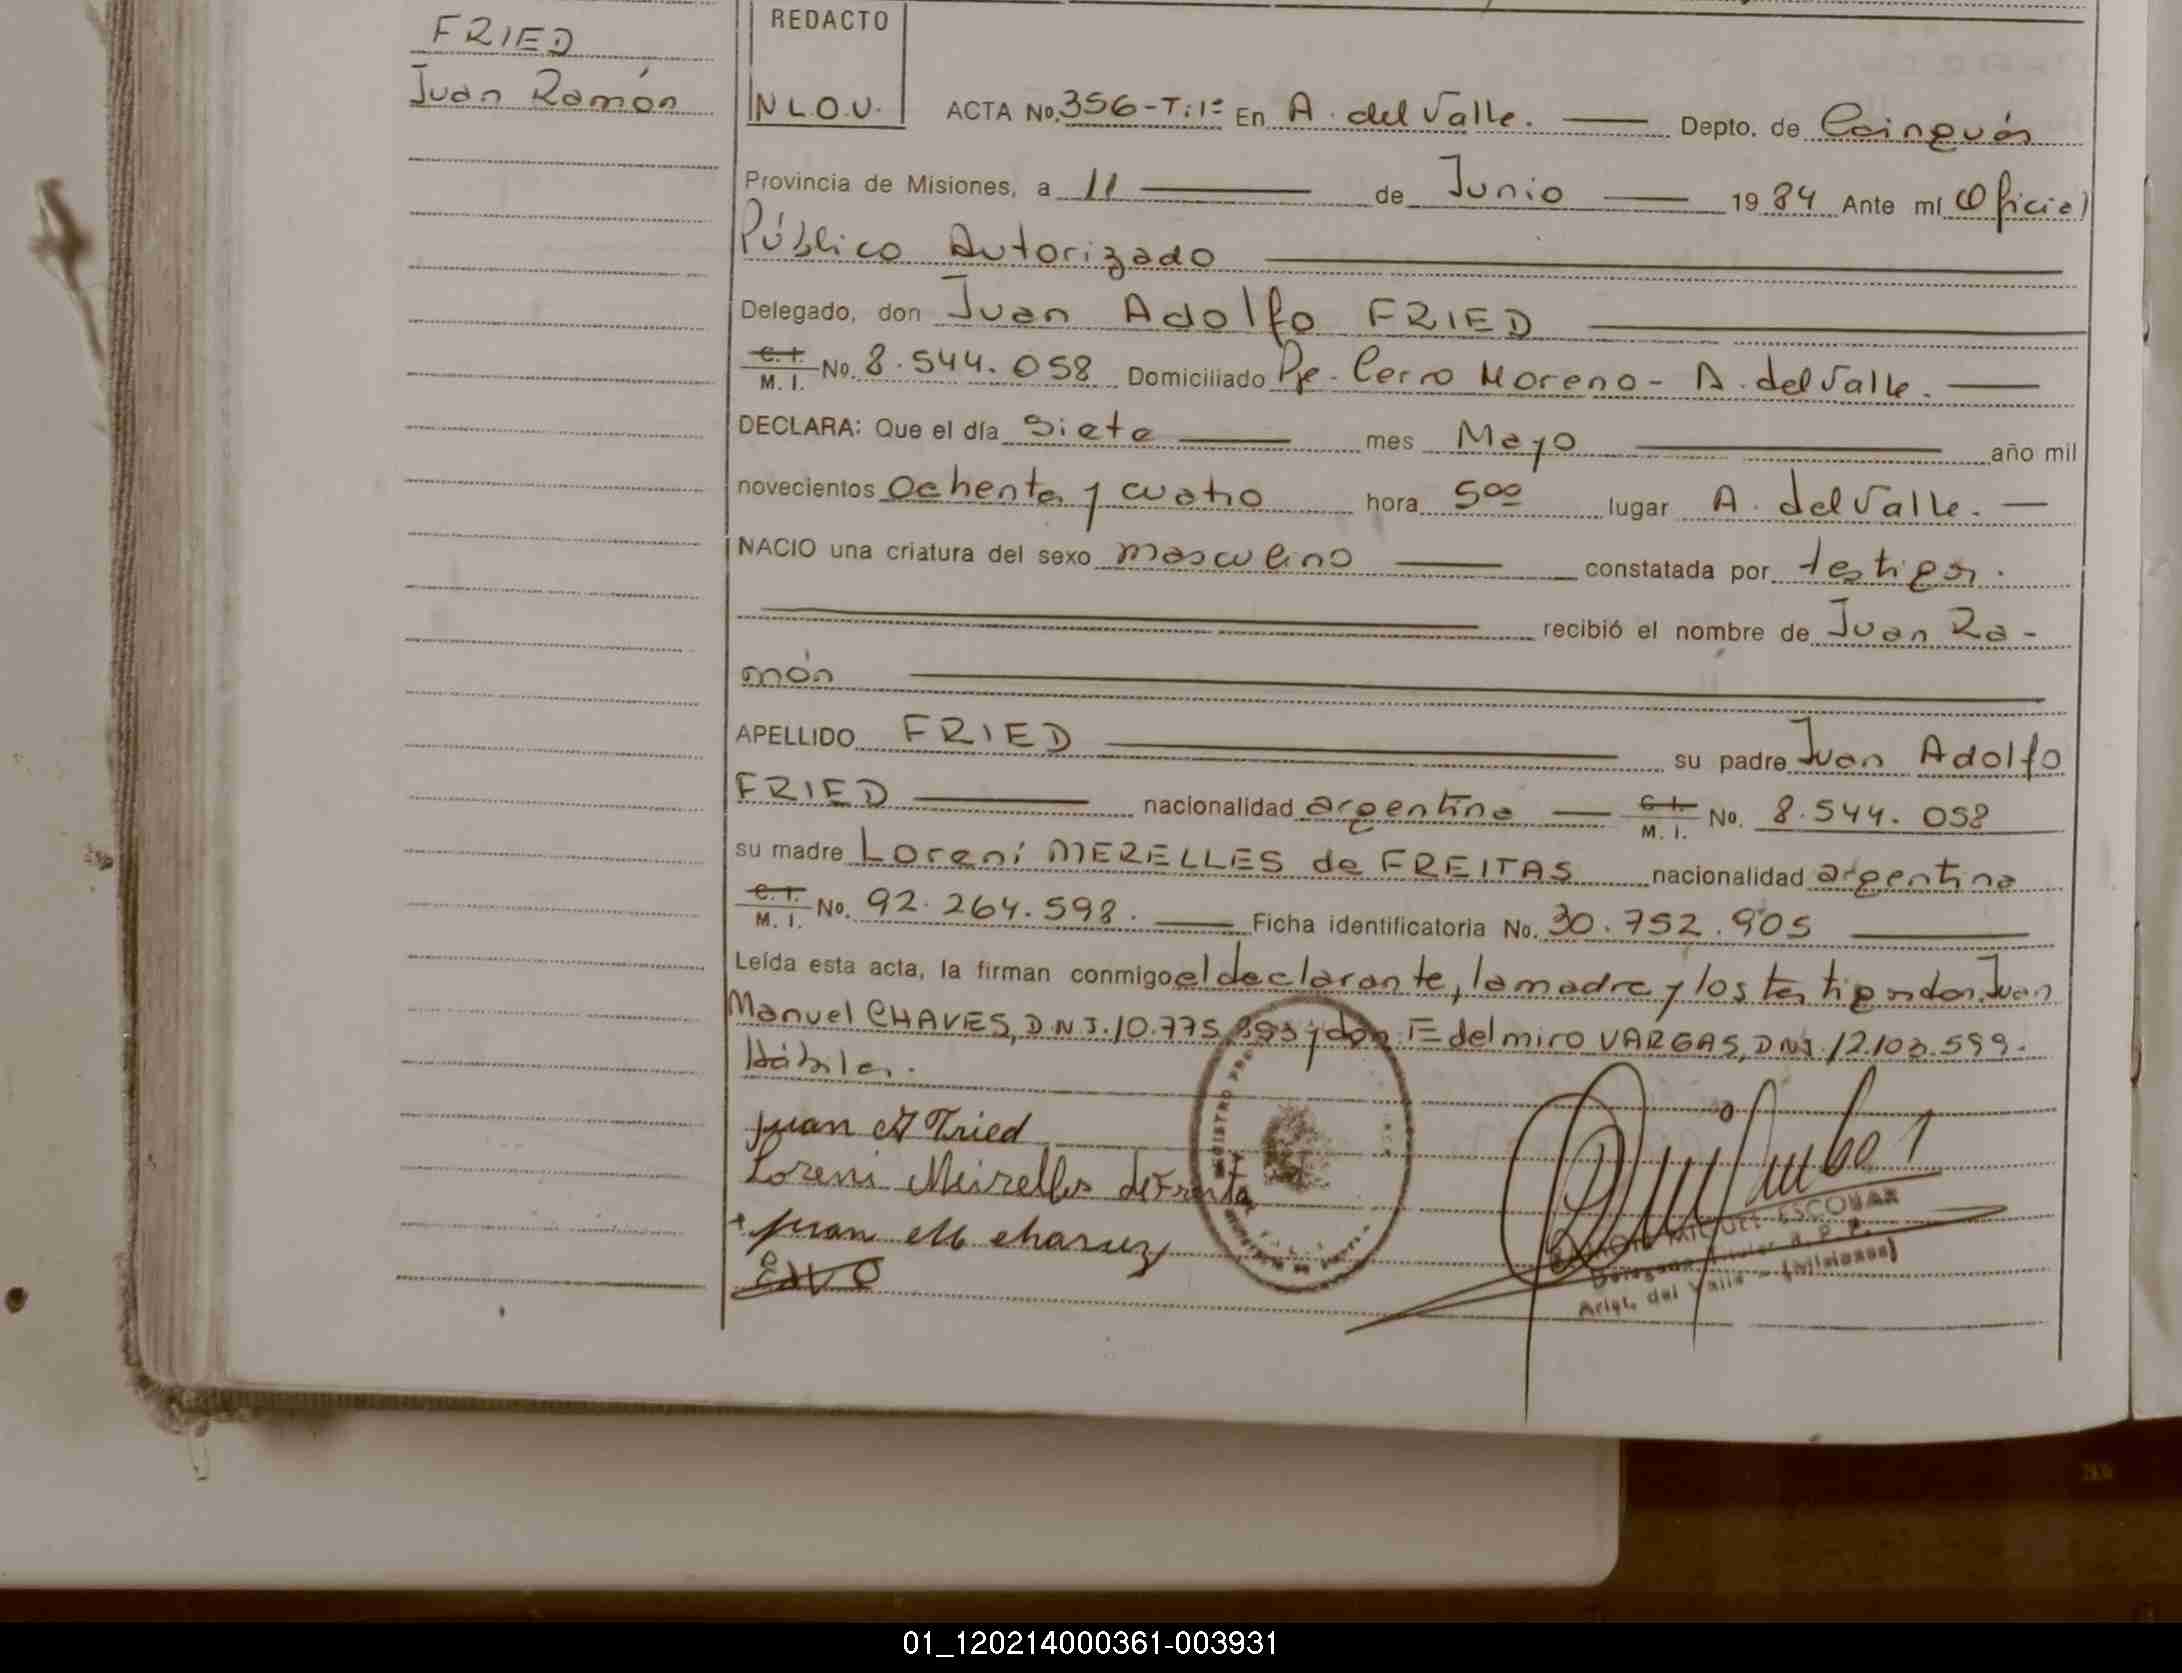 FRIED
Juan Ramón
REDACTO
N L.O.V.
ACTA No. 356-T:1º En A. del Valle. Depto. de Cainguás
Provincia de Misiones, a 11 de Junio 1984 Ante mí Oficial
Público Autorizado
Delegado, don Juan Adolfo FRIED
C. I. M. I. No. 8.544.058 Domiciliado Pje. Cerro Moreno - A. del Valle.
DECLARA: Que el día siete mes Mayo año mil
novecientos ochenta y cuatro hora 5 00 lugar A. del Valle.
NACIO una criatura del sexo masculino constatada por testigos.
recibió el nombre de Juan Ra-
món
APELLIDO FRIED su padre Juan Adolfo
FRIED nacionalidad argentina C. I. M. I. No. 8.544.058
su madre Lorení MERELLES de FREITAS nacionalidad argentina
C. I. M. I. No. 92.264.598. Ficha identificatoria No. 30.752.905
Leída esta acta, la firman conmigo el declarante, la madre y los testigos don Juan
Manuel CHAVES, D.N.I. 10.775. y don Edelmiro VARGAS, D.N.I. 12.103.599.
Hábiles.
Juan A Fried
Loreni Meirelles de
Juan M
MIGUEL ESCOBAR
Delegado
Arist. del Valle - (Misiones)
01_120214000361-003931